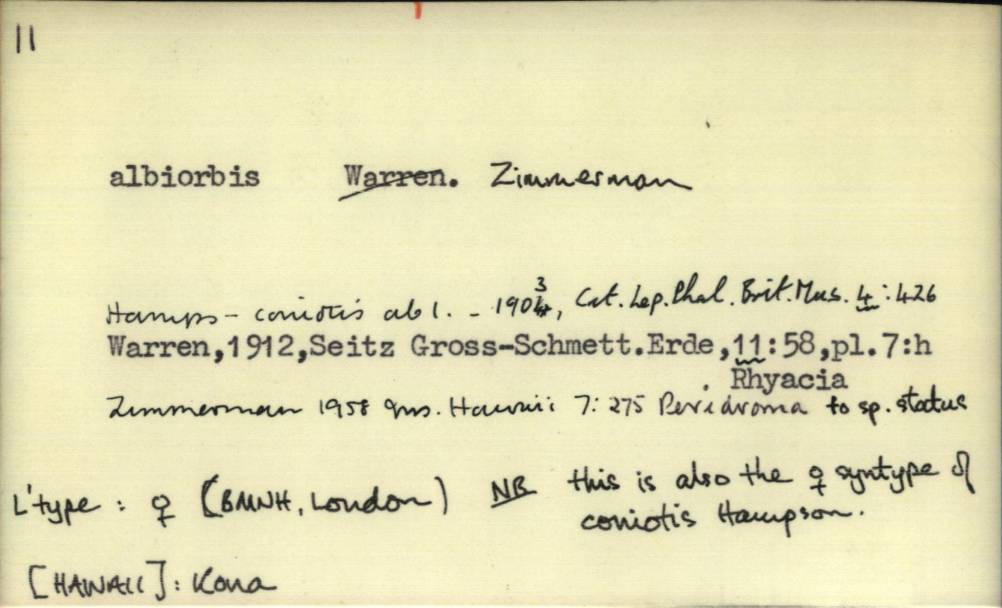 11
albiorbis Warren. Zimmerman
Hamps - coniotis ab 1. - 1903, Cat. Lep. Phal. Brit. Mus. 4: 426
Warren,1912,Seitz Gross-Schmett.Erde,11:58,pl.7:h
Rhyacia
Zimmerman 1958 Ins. Hawaii 7: 275 Peridroma to sp. status
L'type : ♀ (BMNH, London) NB this is also the ♀ syntype of
coniotis Hampson.
[HAWAII]: Kona